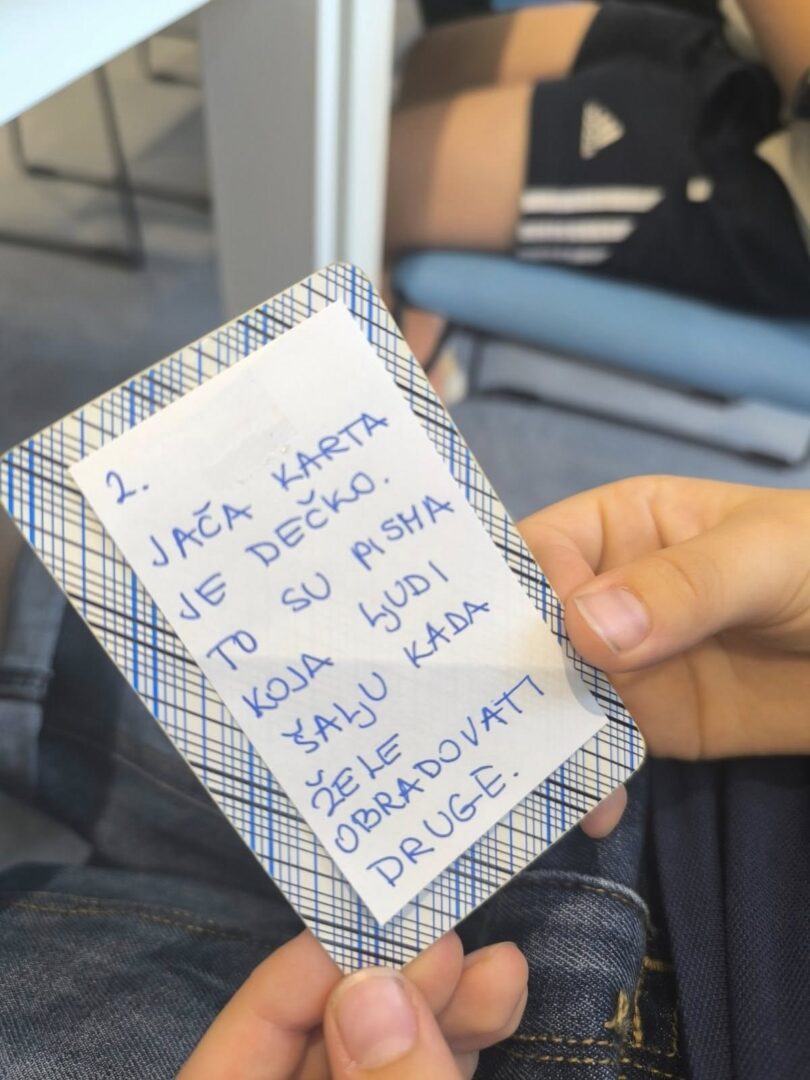 2.
JAČA KARTA
JE DEČKO.
TO SU PISMA
KOJA LJUDI
ŠALJU KADA
ŽELE
OBRADOVATI
DRUGE.